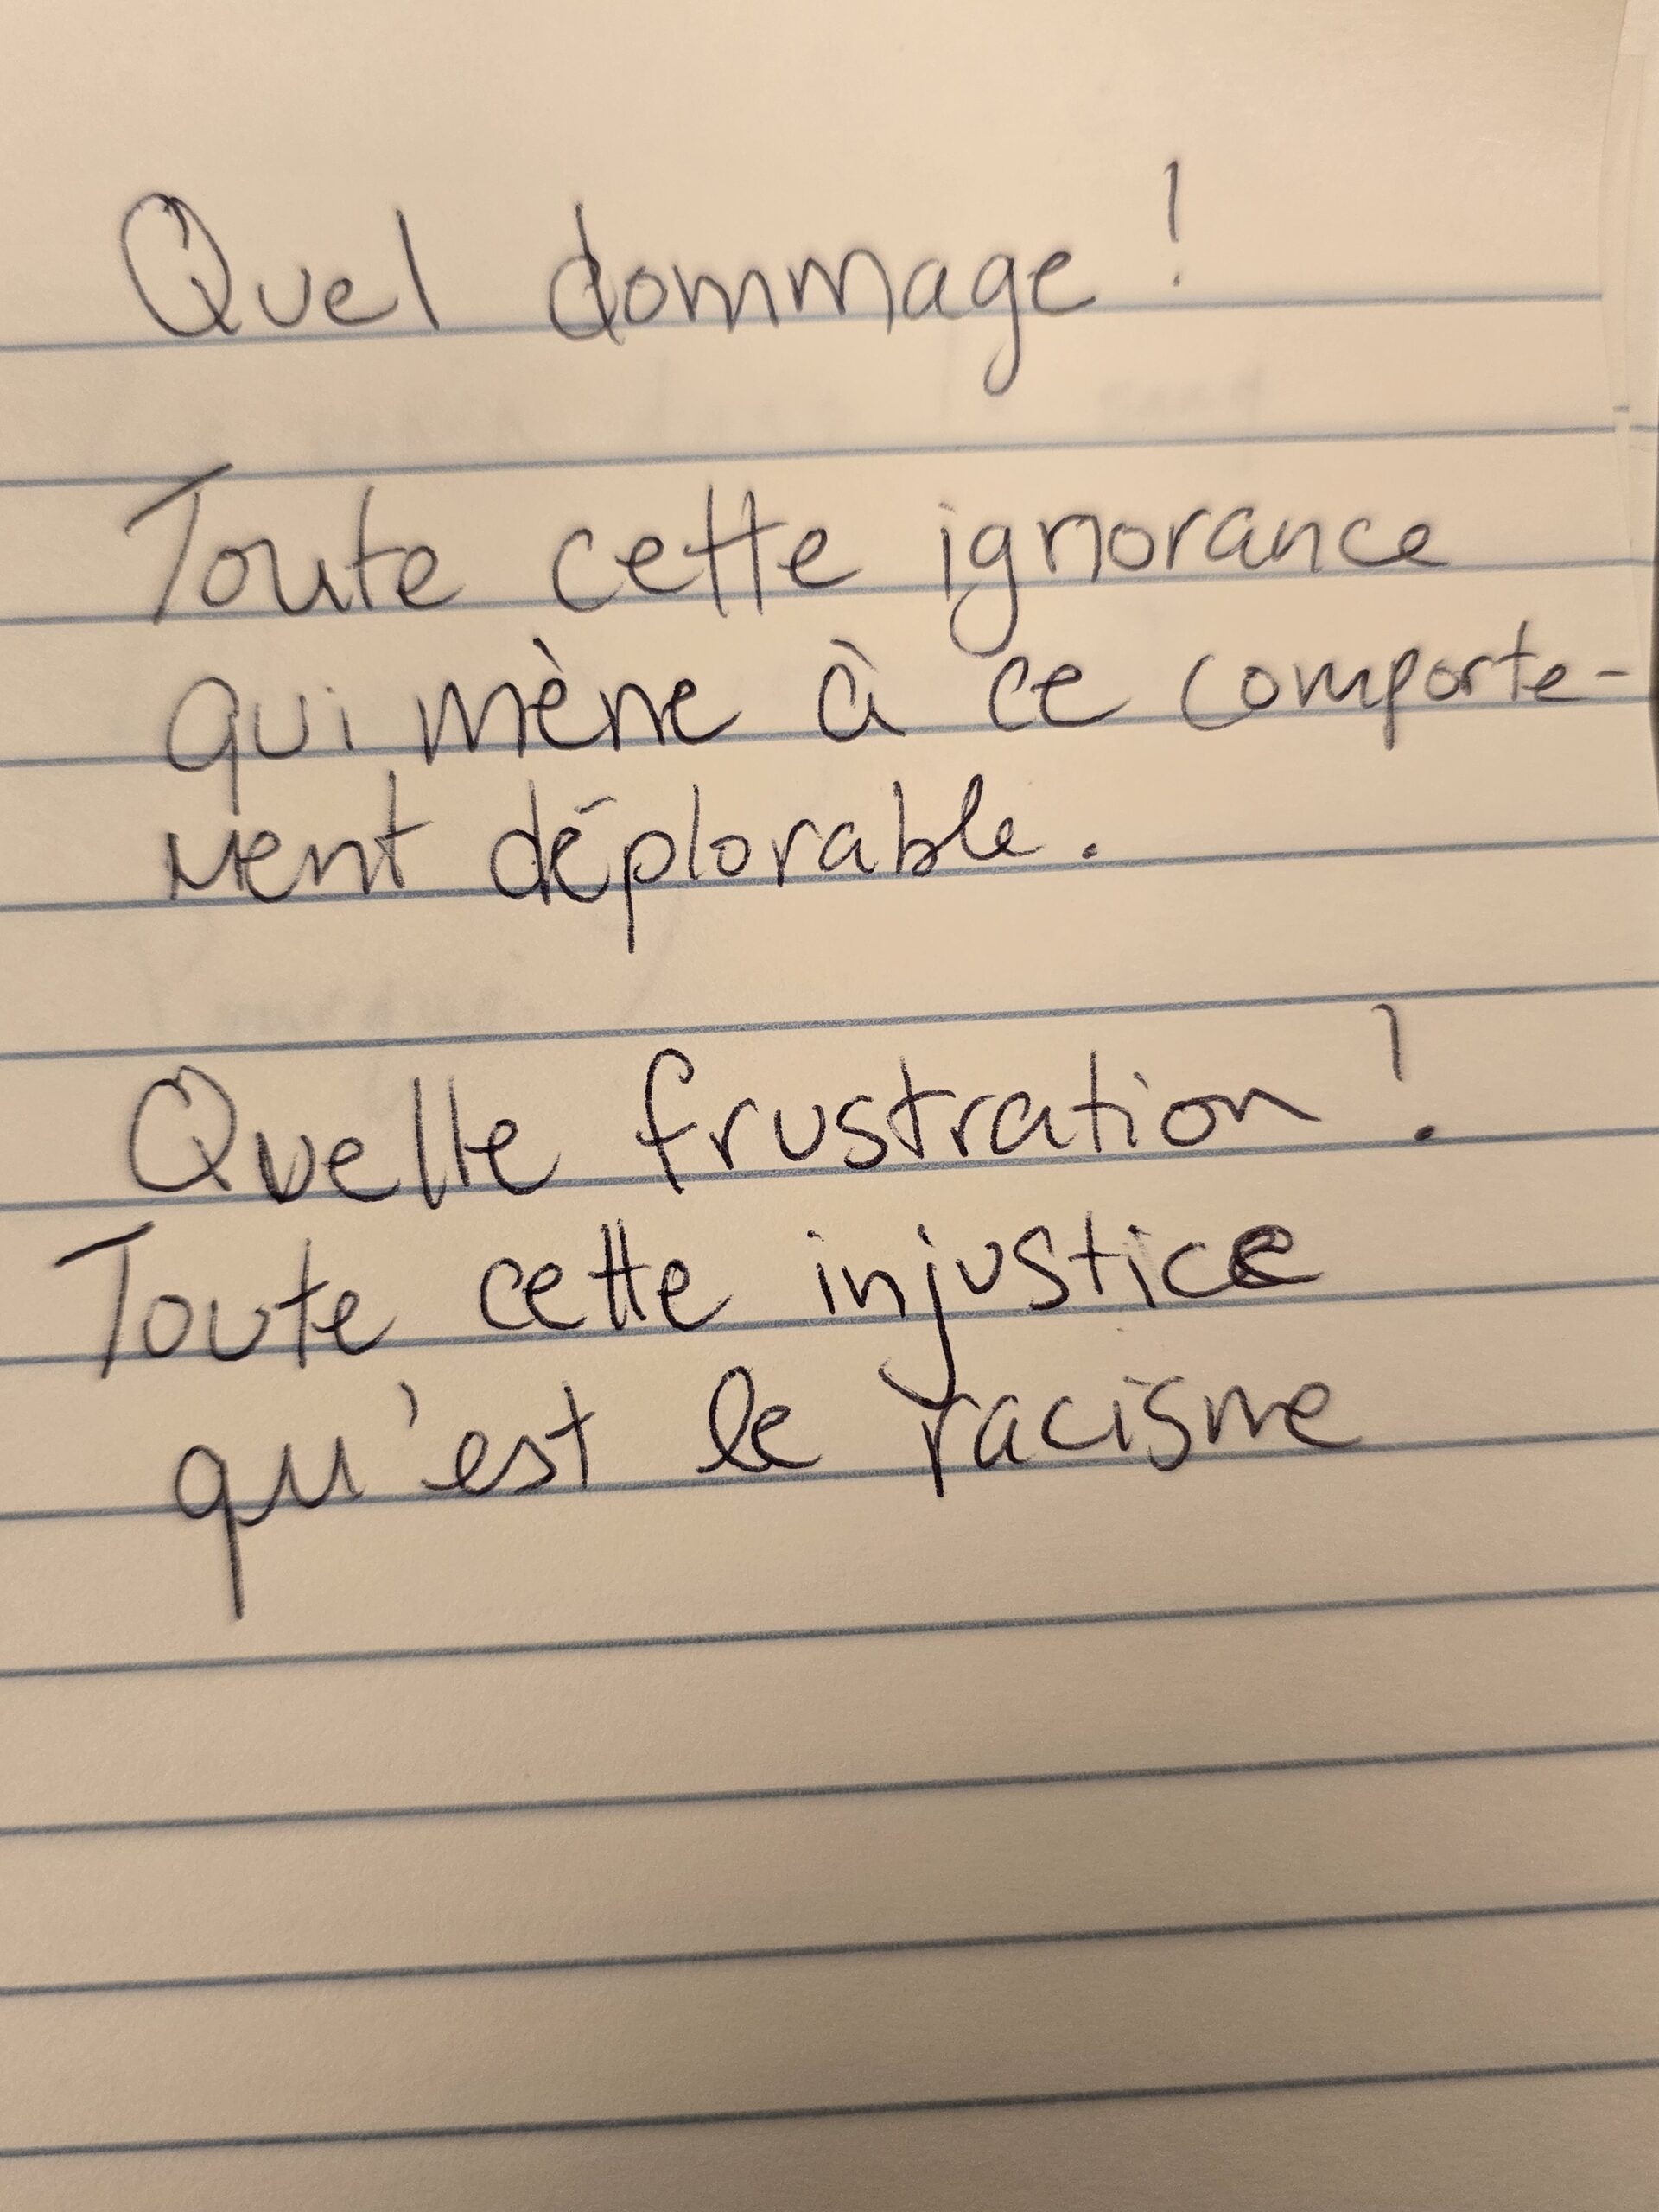 Quel dommage !
Toute cette ignorance
qui mène à ce comporte-
ment déplorable.
Quelle frustration !
Toute cette injustice
qu'est le racisme